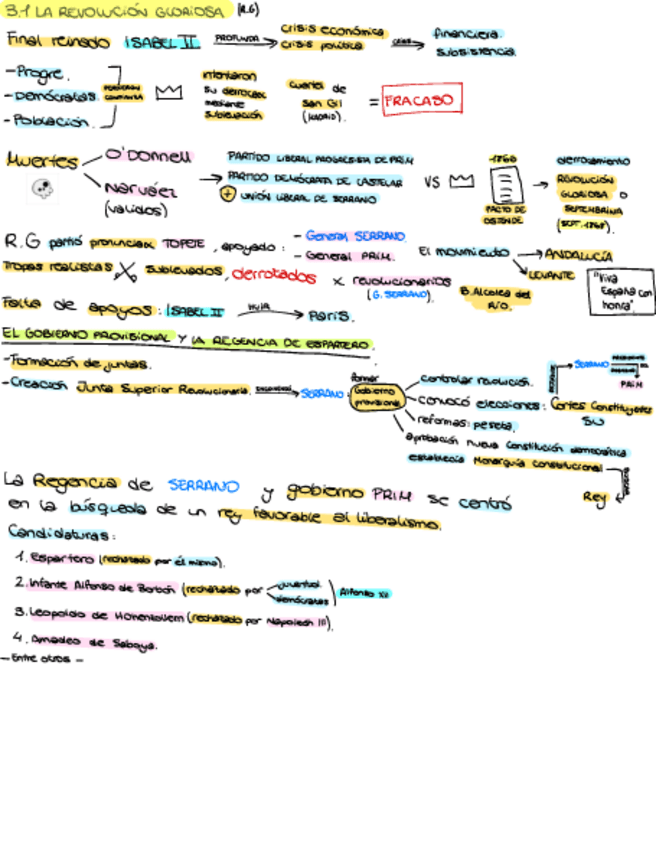 3.1 LA REVOLUCIÓN GLORIOSA (R.G)
Final reinado ISABEL II PROFUNDA → crisis económica crisis política CRISIS → financiera. subsistencia.
- Progre.
- Demócratas.
- Población.
PERDIERON CONFIANZA
intentaron su derrocar mediante sublevación
cuartel de San Gil (MADRID).
= FRACASO
Muertes
O'Donnell
Narváez (validos)
→ PARTIDO LIBERAL PROGRESISTA DE PRIM
PARTIDO DEMÓCRATA DE CASTELAR
+ UNIÓN LIBERAL DE SERRANO
VS
PACTO DE OSTENDE
→ derrocamiento
REVOLUCIÓN GLORIOSA O SEPTEMBRINA (SEPT. 1868).
R.G partió pronunciar TOPETE, apoyado:
- General SERRANO.
- General PRIM.
El movimiento → ANDALUCÍA
LEVANTE
"Viva España con honra."
Tropas realistas X sublevados, derrotados x revolucionarios (G. SERRANO).
B. Alcolea del Río.
Falta de apoyos: ISABEL II HUIR → París.
EL GOBIERNO PROVISIONAL Y LA REGENCIA DE ESPARTERO.
- Formación de juntas.
- Creación Junta Superior Revolucionaria. → SERRANO:
formar
Gobierno provisional
controlar revolución.
convocó elecciones: Cortes Constituyentes SU
reformas: peseta.
aprobación nueva Constitución democrática establecía Monarquía constitucional
→ SERRANO
PRIM
Rey
La Regencia de SERRANO y gobierno PRIM se centró
en la búsqueda de un rey favorable al liberalismo.
Candidaturas:
1. Espartero (rechazado por él mismo).
2. Infante Alfonso de Borbón (rechazado por juventud. demócratas) Alfonso XII
3. Leopoldo de Honenzollern (rechazado por Napoleón III).
4. Amadeo de Saboya.
- Entre otros -